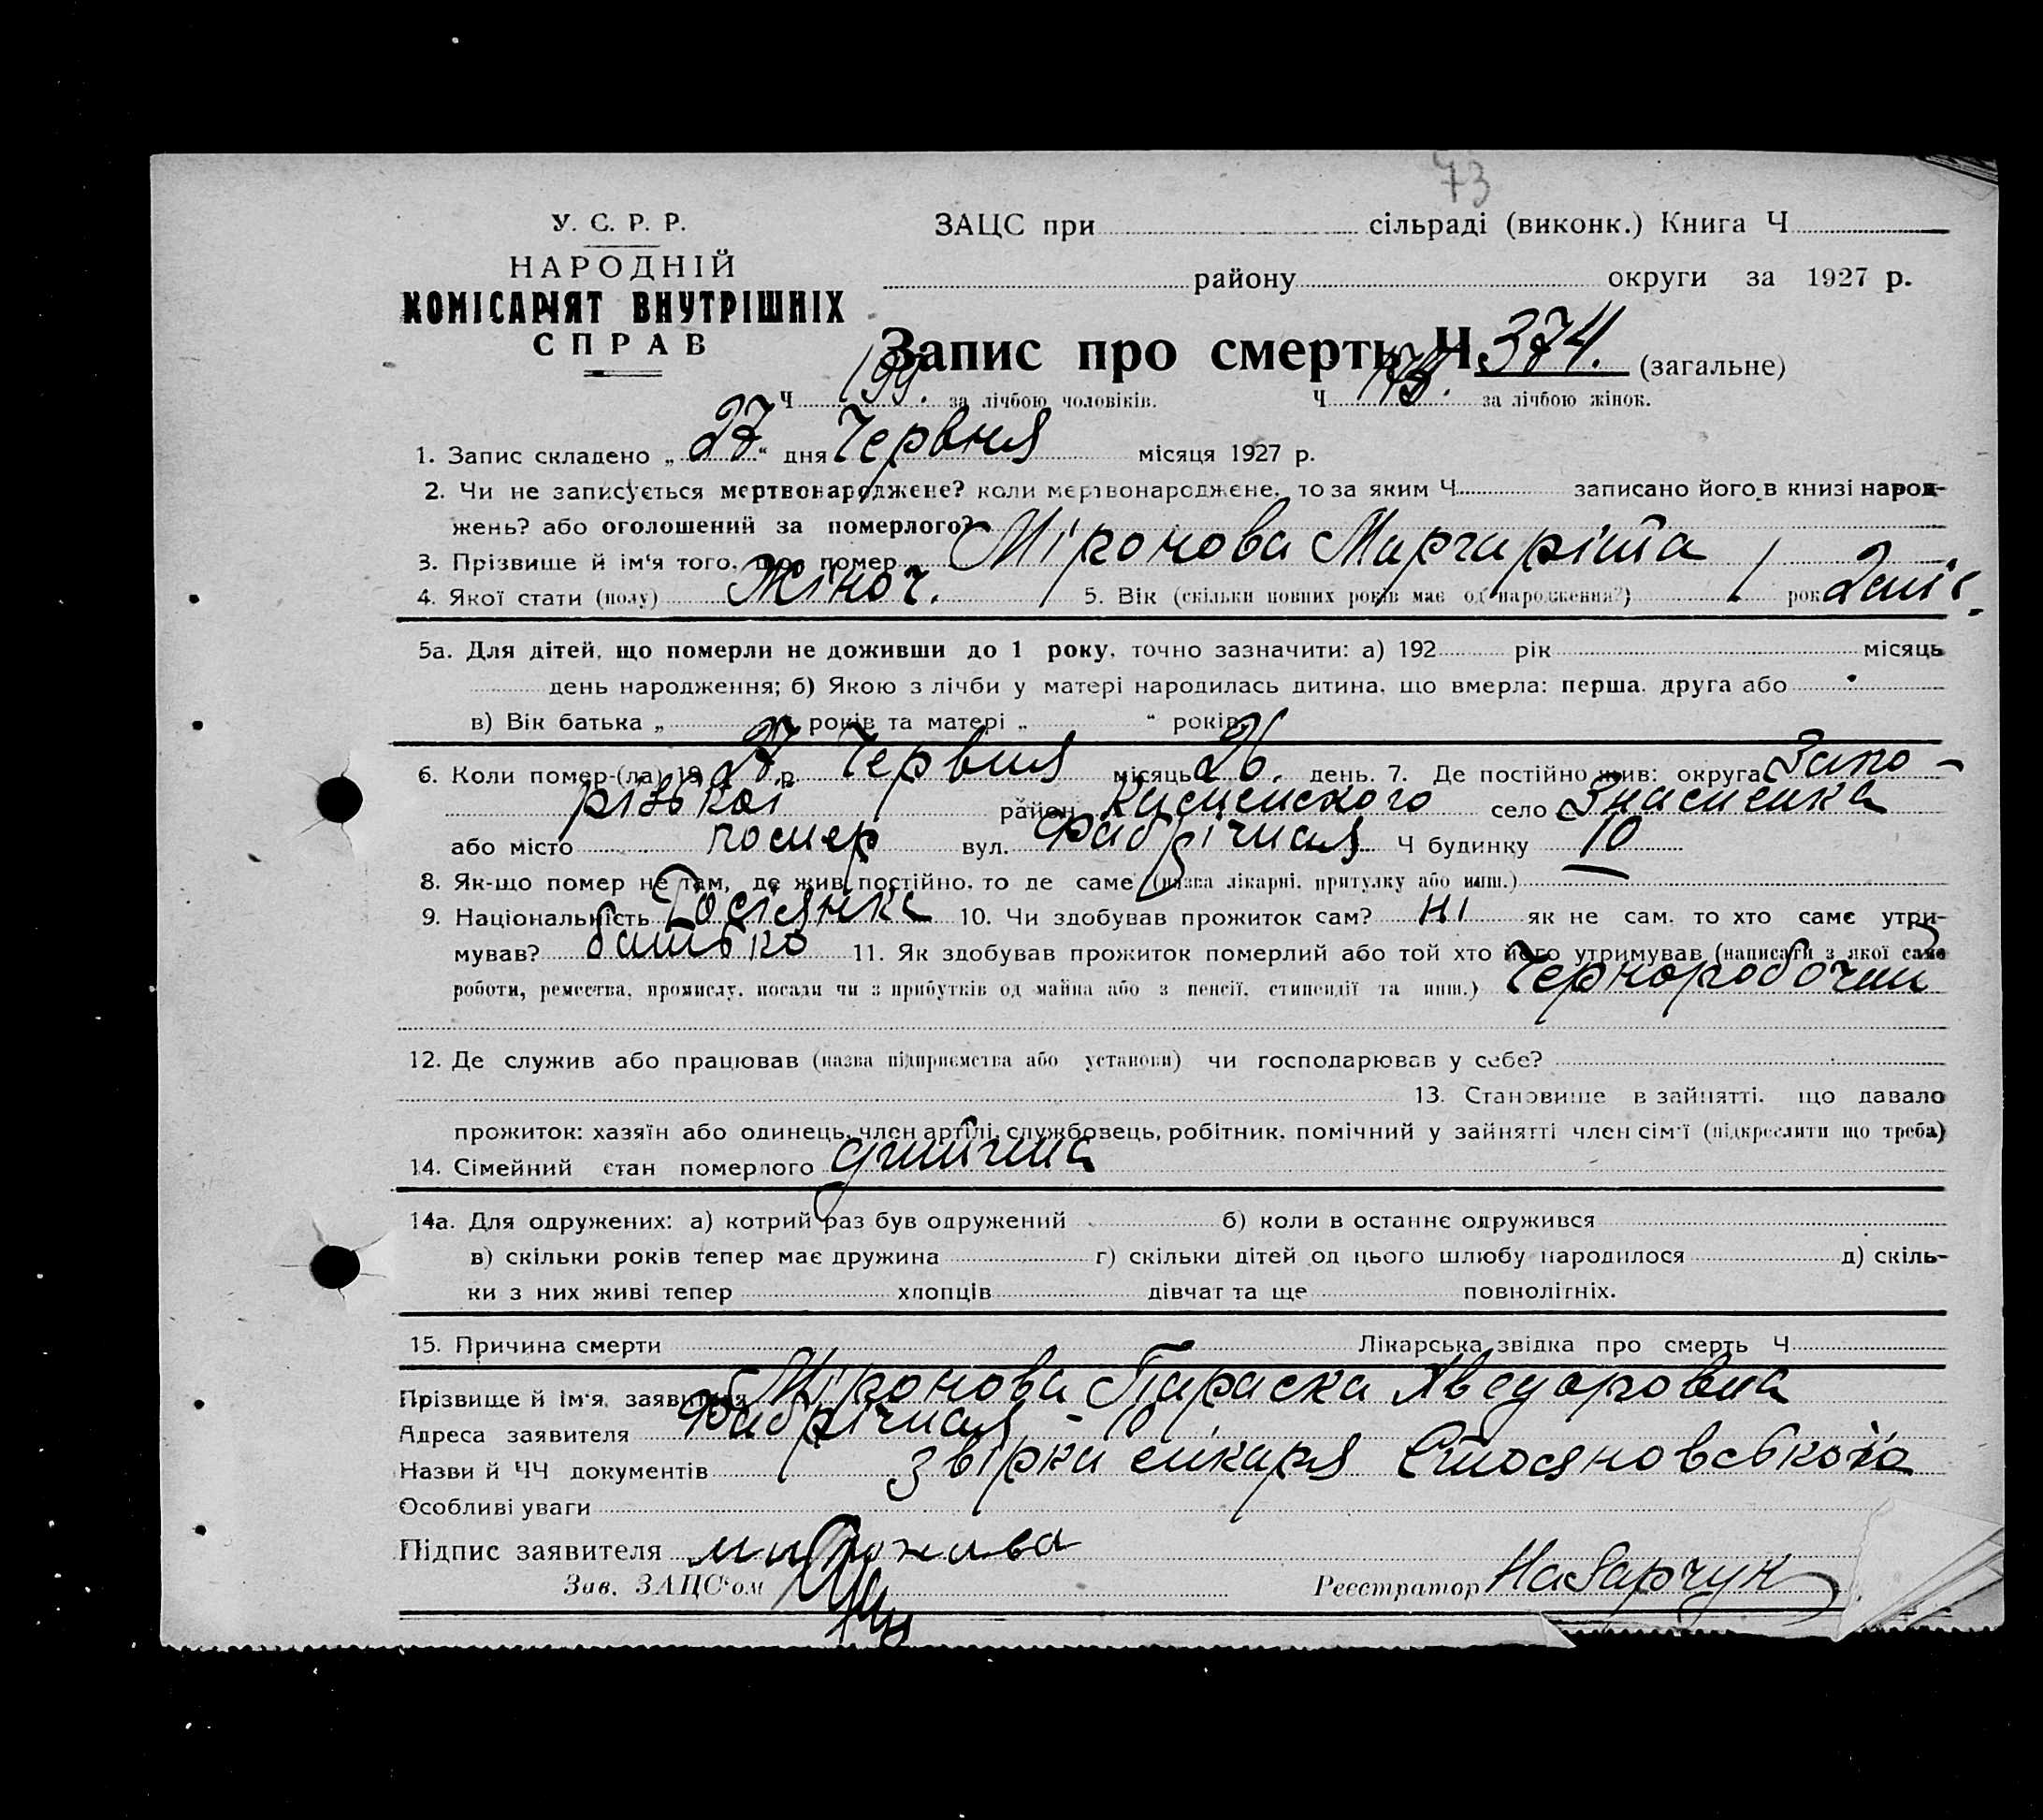 73
У. С. Р. Р.
НАРОДНІЙ
КОМІСАРІЯТ ВНУТРІШНІХ
СПРАВ
ЗАЦС при сільраді (виконк.) Книга Ч
району округи за 1927 р.
Запис про смерть Ч 374. (загальне)
Ч 199. за лічбою чоловіків. Ч за лічбою жінок.
1. Запис складено „27“ дня Червня місяця 1927 р.
2. Чи не записується мертвонароджене? коли мертвонароджене, то за яким Ч записано його в книзі народ-
жень? або оголошений за померлого?
3. Прізвище й ім'я того, що помер Міронова Маргаріта
4. Якої стати (полу) Жіноч. 5. Вік (скільки повних років має од народження?) 1 рок 2 міс.
5а. Для дітей, що померли не доживши до 1 року, точно зазначити: а) 192 рік місяць
день народження; б) Якою з лічби у матері народилась дитина, що вмерла: перша, друга або
в) Вік батька „ “ років та матері „ “ років.
6. Коли помер-(ла) 1927 р. Червня місяць 26. день. 7. Де постійно жив: округа Запо-
різької район Каменського село Знаменка
або місто помер вул. Фабрічная Ч будинку 10
8. Як-що помер не там, де жив постійно, то де саме (назва лікарні, притулку або инш.)
9. Національність Росіянка 10. Чи здобував прожиток сам? ні як не сам, то хто саме утри-
мував? батько 11. Як здобував прожиток померлий або той хто його утримував (написати з якої саме
роботи, ремества, промислу, посади чи з прибутків од майна або з пенсії, стипендії та инш.) Чернорабочий
12. Де служив або працював (назва підприємства або установи) чи господарював у себе?
13. Становище в зайнятті, що давало
прожиток: хазяїн або одинець, член артілі, службовець, робітник, помічний у зайнятті член сім'ї (підкреслити що треба)
14. Сімейний стан померлого дитина
14а. Для одружених: а) котрий раз був одружений б) коли в останнє одружився
в) скільки років тепер має дружина г) скільки дітей од цього шлюбу народилося д) скіль-
ки з них живі тепер хлопців дівчат та ще повнолітніх.
15. Причина смерти Лікарська звідка про смерть Ч
Прізвище й ім'я, заявителя Міронова Параска Хведоровна
Адреса заявителя Фабрічная - 10
Назви й ЧЧ документів звірка лікаря Стояновського
Особливі уваги
Підпис заявителя
Зав. ЗАЦС'ом Реєстратор Назарчук